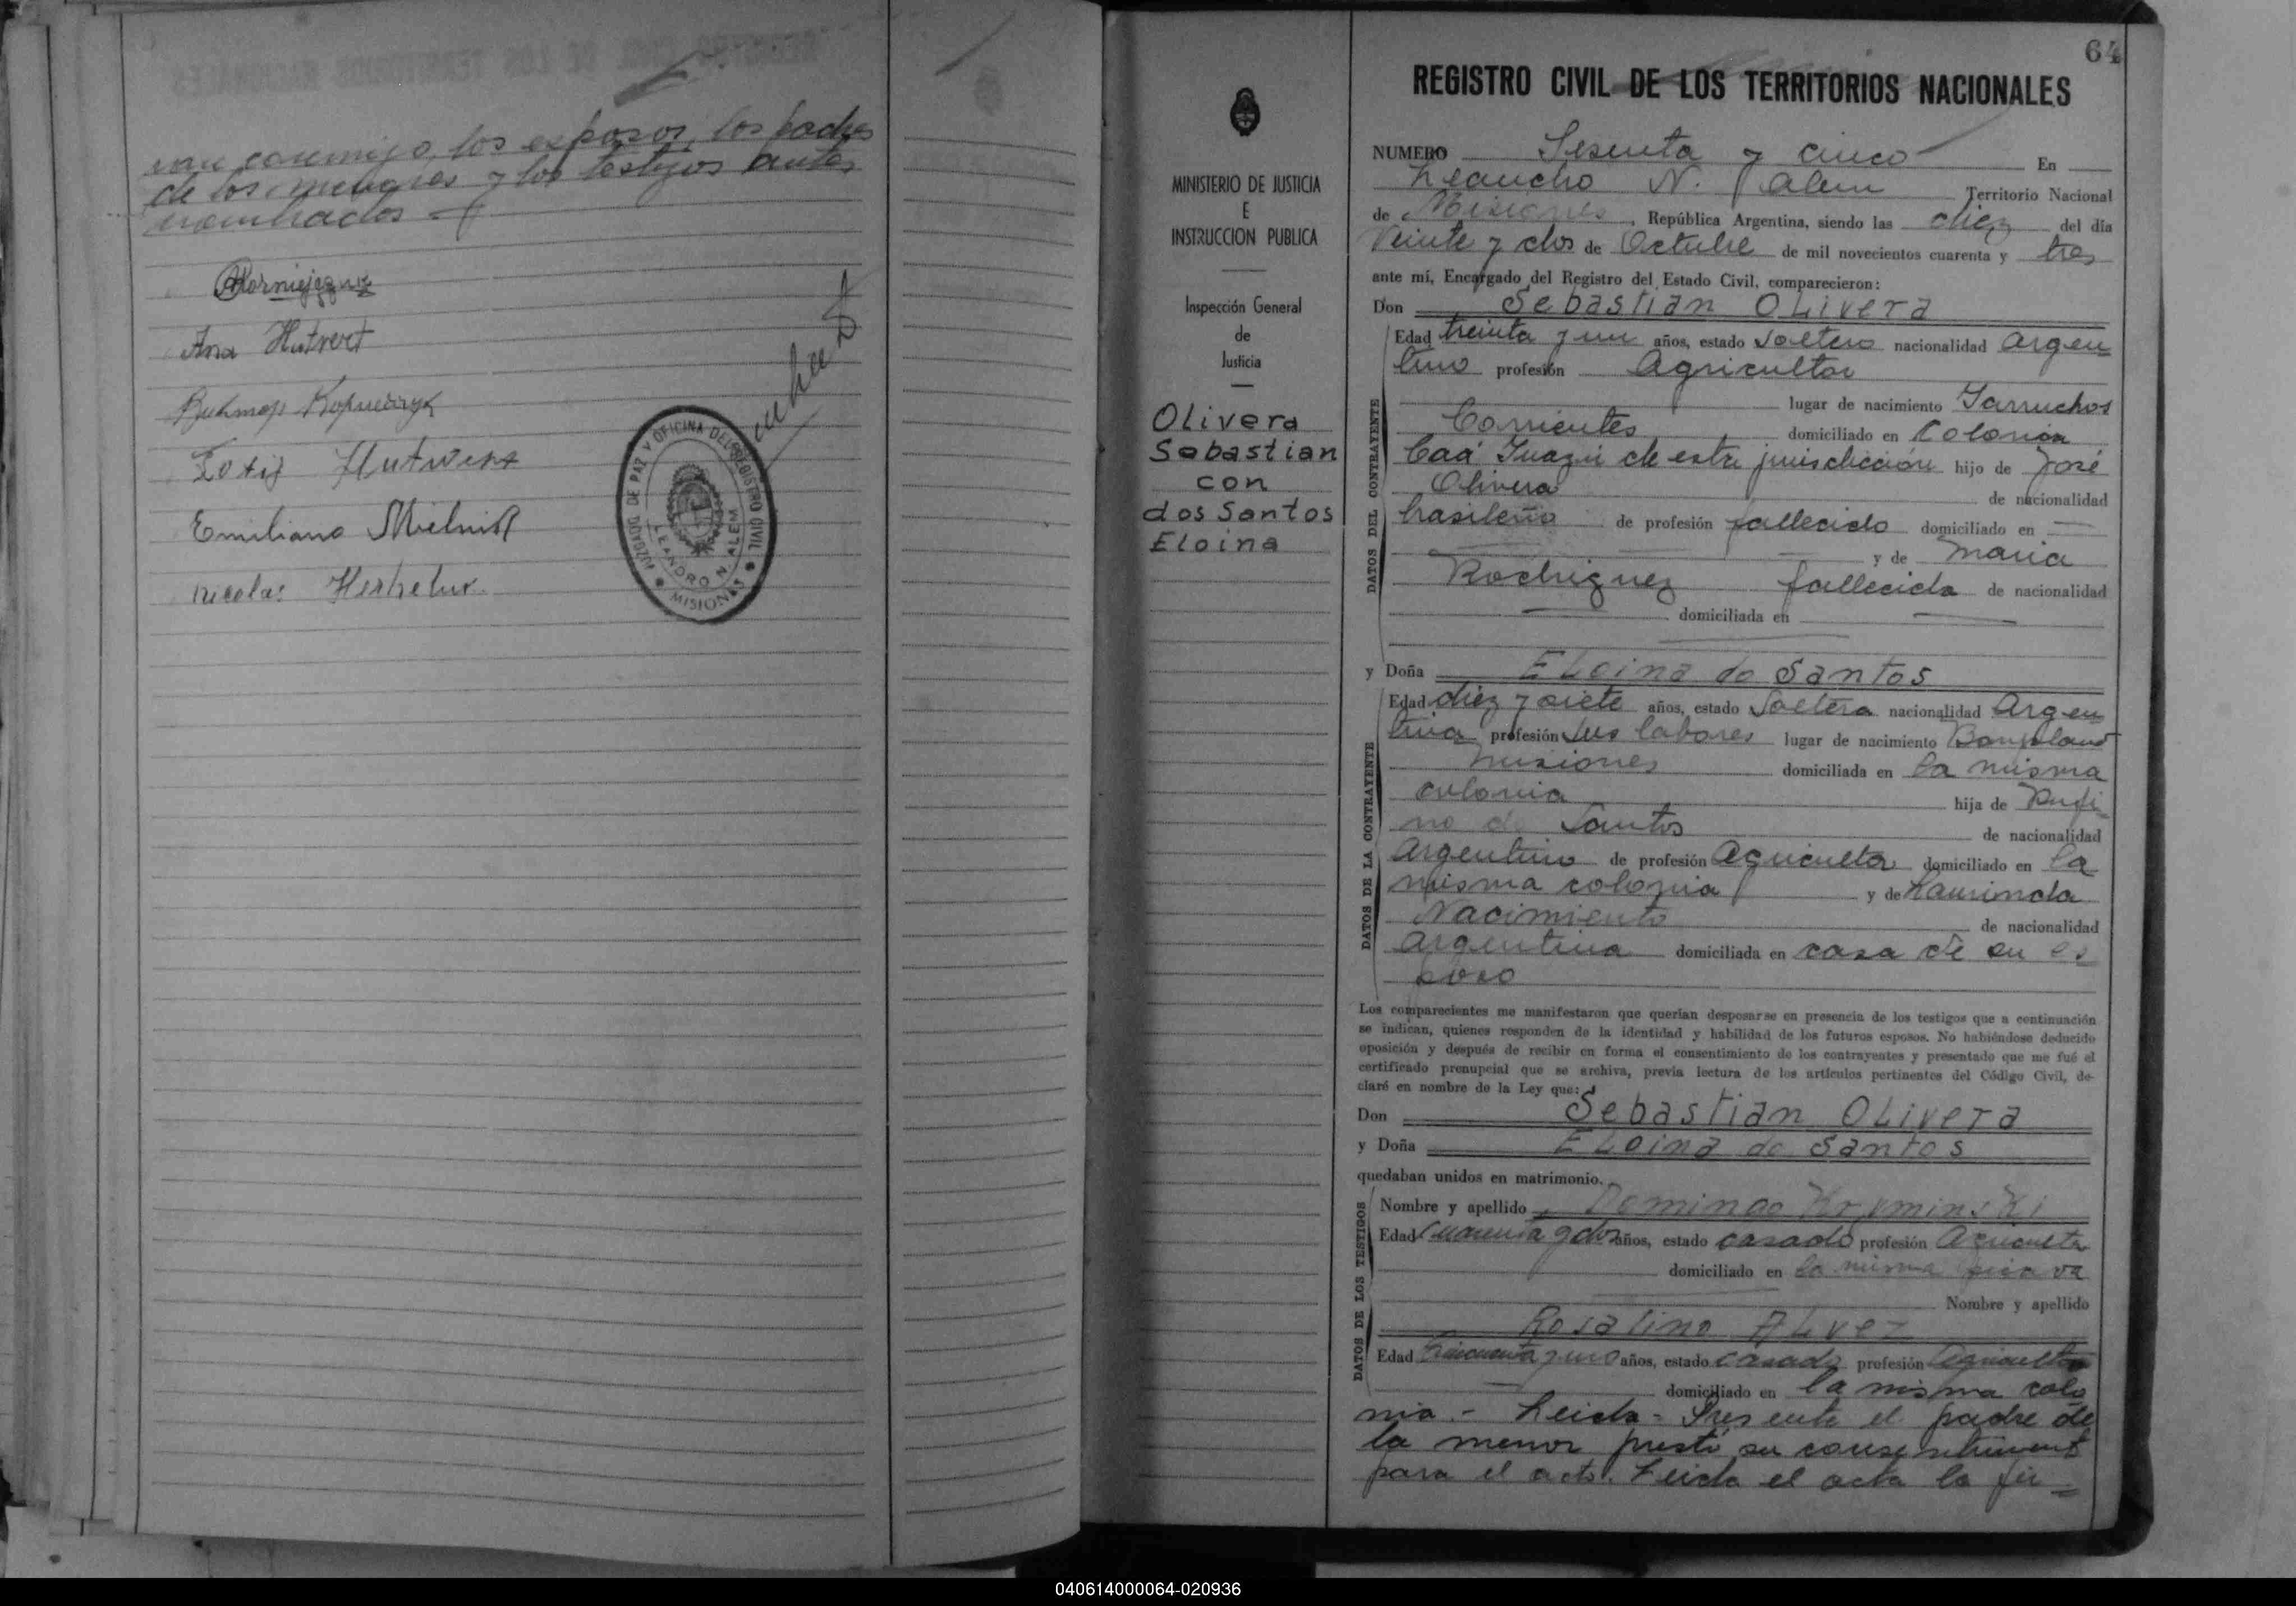 man conmigo, los esposos, los padres
de los menores y los testigos antes
nombrados
Ana Hutvert
Emiliano Mielnik
Nicolas
JUZGADO DE PAZ Y OFICINA DEL REGISTRO CIVIL
LEANDRO N. ALEM
MISIONES
64
REGISTRO CIVIL DE LOS TERRITORIOS NACIONALES
MINISTERIO DE JUSTICIA
E
INSTRUCCION PUBLICA
Inspección General
de
Justicia
Olivera
Sebastian
con
dos Santos
Eloina
NUMERO Sesenta y cinco En
Leandro N. Alem Territorio Nacional
de Misiones, República Argentina, siendo las diez del día
Veinte y dos de Octubre de mil novecientos cuarenta y tres
ante mí, Encargado del Registro del Estado Civil, comparecieron:
Don Sebastian Olivera
DATOS DEL CONTRAYENTE
Edad treinta y un años, estado Soltero nacionalidad Argen
tino profesión Agricultor
lugar de nacimiento Garruchos
Corrientes domiciliado en Colonia
Caá Guazú de esta jurisdicción hijo de José
Olivera de nacionalidad
brasileño de profesión fallecido domiciliado en
y de Maria
Rodriguez fallecida de nacionalidad
domiciliada en
y Doña Eloina do Santos
DATOS DE LA CONTRAYENTE
Edad diez y siete años, estado Soltera nacionalidad Argen
tina profesión sus labores lugar de nacimiento Bonpland
Misiones domiciliada en la misma
colonia hija de Rufi
no do Santos de nacionalidad
Argentino de profesión Agricultor domiciliado en la
misma colonia y de Laurinda
Nacimiento de nacionalidad
Argentina domiciliada en casa de su es
poso
Los comparecientes me manifestaron que querían desposarse en presencia de los testigos que a continuación
se indican, quienes responden de la identidad y habilidad de los futuros esposos. No habiéndose deducido
oposición y después de recibir en forma el consentimiento de los contrayentes y presentado que me fué el
certificado prenupcial que se archiva, previa lectura de los artículos pertinentes del Código Civil, de-
claré en nombre de la Ley que:
Don Sebastian Olivera
y Doña Eloina do Santos
quedaban unidos en matrimonio.
DATOS DE LOS TESTIGOS
Nombre y apellido Domingo Kryminski
Edad Cuarenta y dos años, estado casado profesión Agricultor
domiciliado en la misma
Nombre y apellido
Rosalino Alvez
Edad Cincuenta y uno años, estado casado profesión Agricultor
domiciliado en la misma colo
nia.- Leida= Presente el padre de
la menor prestó su consentimient
para el acto. Leida el acta la fir=
040614000064-020936